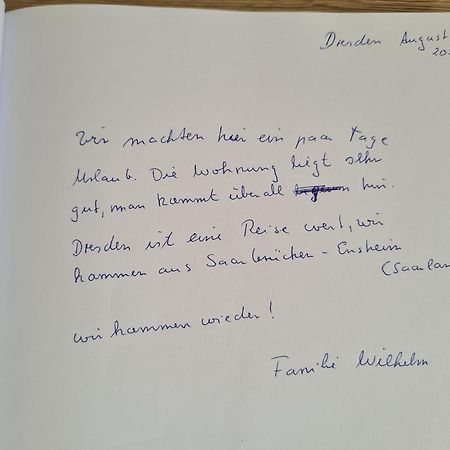 Dresden August
20
Wir machten hier ein paar Tage
Urlaub. Die Wohnung liegt sehr
gut, man kommt überall hin.
Dresden ist eine Reise wert, wir
kommen aus Saarbrücken - Ensheim
(Saarlan
wir kommen wieder!
Familie Wilhelm